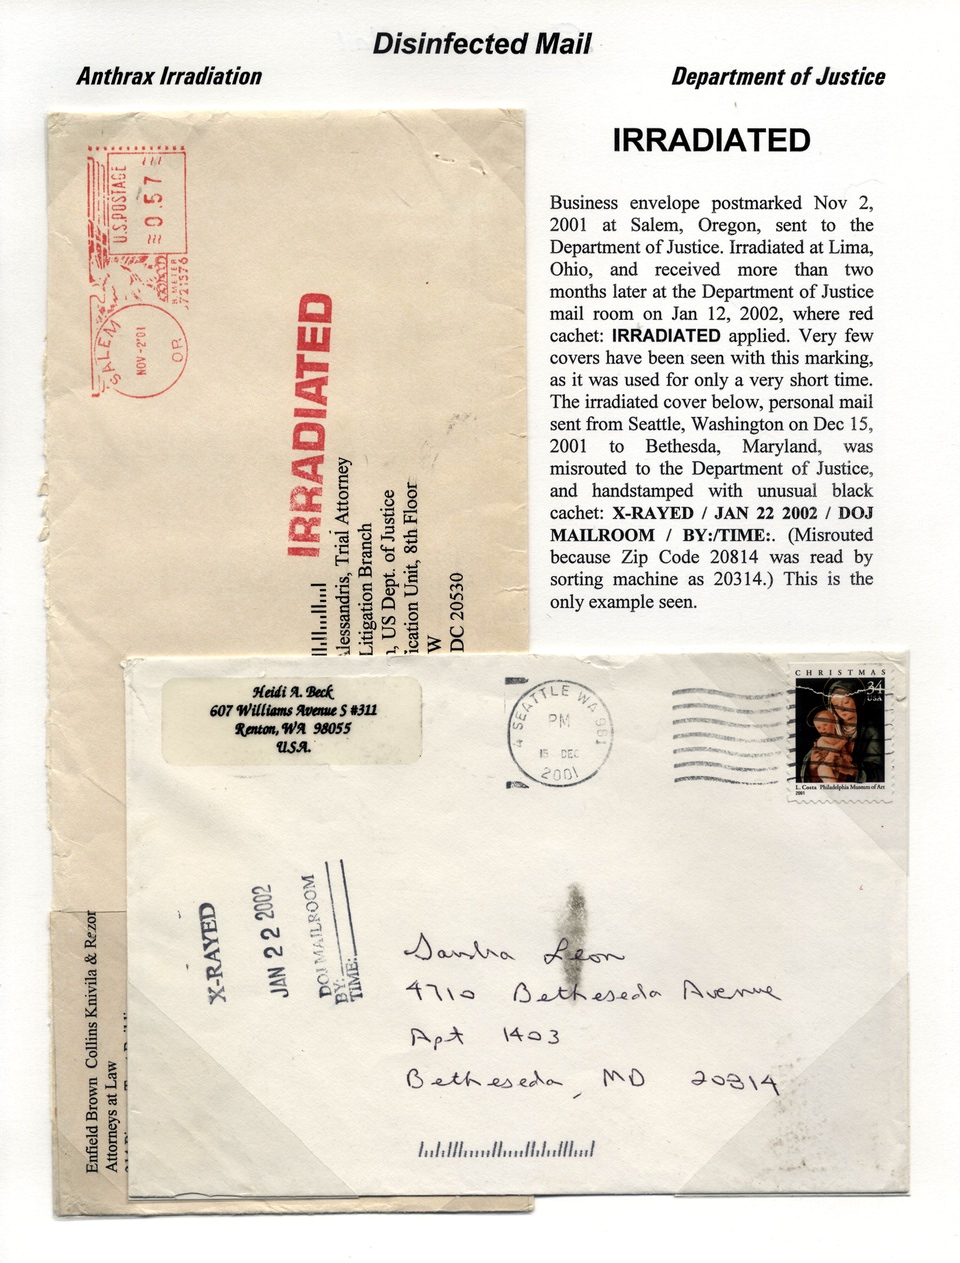 Disinfected Mail
Anthrax Irradiation
Department of Justice
IRRADIATED
Business envelope postmarked Nov 2,
2001 at Salem, Oregon, sent to the
Department of Justice. Irradiated at Lima,
Ohio, and received more than two
months later at the Department of Justice
mail room on Jan 12, 2002, where red
cachet: IRRADIATED applied. Very few
covers have been seen with this marking,
as it was used for only a very short time.
The irradiated cover below, personal mail
sent from Seattle, Washington on Dec 15,
2001 to Bethesda, Maryland, was
misrouted to the Department of Justice,
and handstamped with unusual black
cachet: X-RAYED / JAN 22 2002 / DOJ
MAILROOM / BY:/TIME:. (Misrouted
because Zip Code 20814 was read by
sorting machine as 20314.) This is the
only example seen.
U.S. POSTAGE
0.57
B. METER
721576
SALEM OR
NOV-2'01
IRRADIATED
lessandris, Trial Attorney
Litigation Branch
, US Dept. of Justice
ication Unit, 8th Floor
W
DC 20530
Enfield Brown Collins Knivila & Rezor
Attorneys at Law
Heidi A. Beck
607 Williams Avenue S #311
Renton, WA 98055
U.S.A.
SEATTLE WA 981
PM
15 DEC
2001
CHRISTMAS
34
USA
L. Costa Philadelphia Museum of Art
2001
X-RAYED
JAN 22 2002
DOJ MAILROOM
BY:
TIME:
Sandra Leon
4710 Betheseda Avenue
Apt 1403
Betheseda, MD 20814